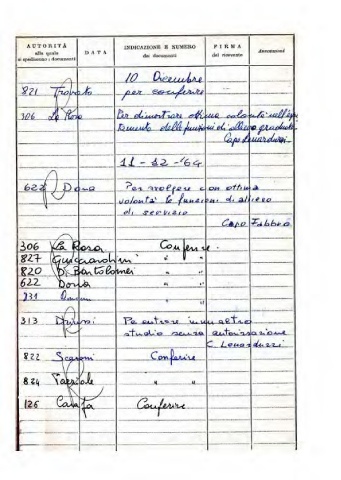 AUTORITÀ
alla quale
si spediscono i documenti
DATA
INDICAZIONE E NUMERO
dei documenti
FIRMA
del ricevente
Annotazioni
10 Dicembre
821 Trovato per conferire
306 La Rosa Per dimostrare ottima volontà nell'
delle funzioni di allievo graduato
Capo Lenarduzzi
11-12-'64
622 Dona Per svolgere con ottima
volontà le funzioni di allievo
di servizio
Capo Fabbro
306 La Rosa Conferire.
827 Guicciardini " "
820 Di Bartolomei " "
622 Dona " "
831 "
313 Per entrare in un altro
studio senza autorizzazione
C. Lenarduzzi
822 Scaroni Conferire
824 " "
126 Carafa Conferire